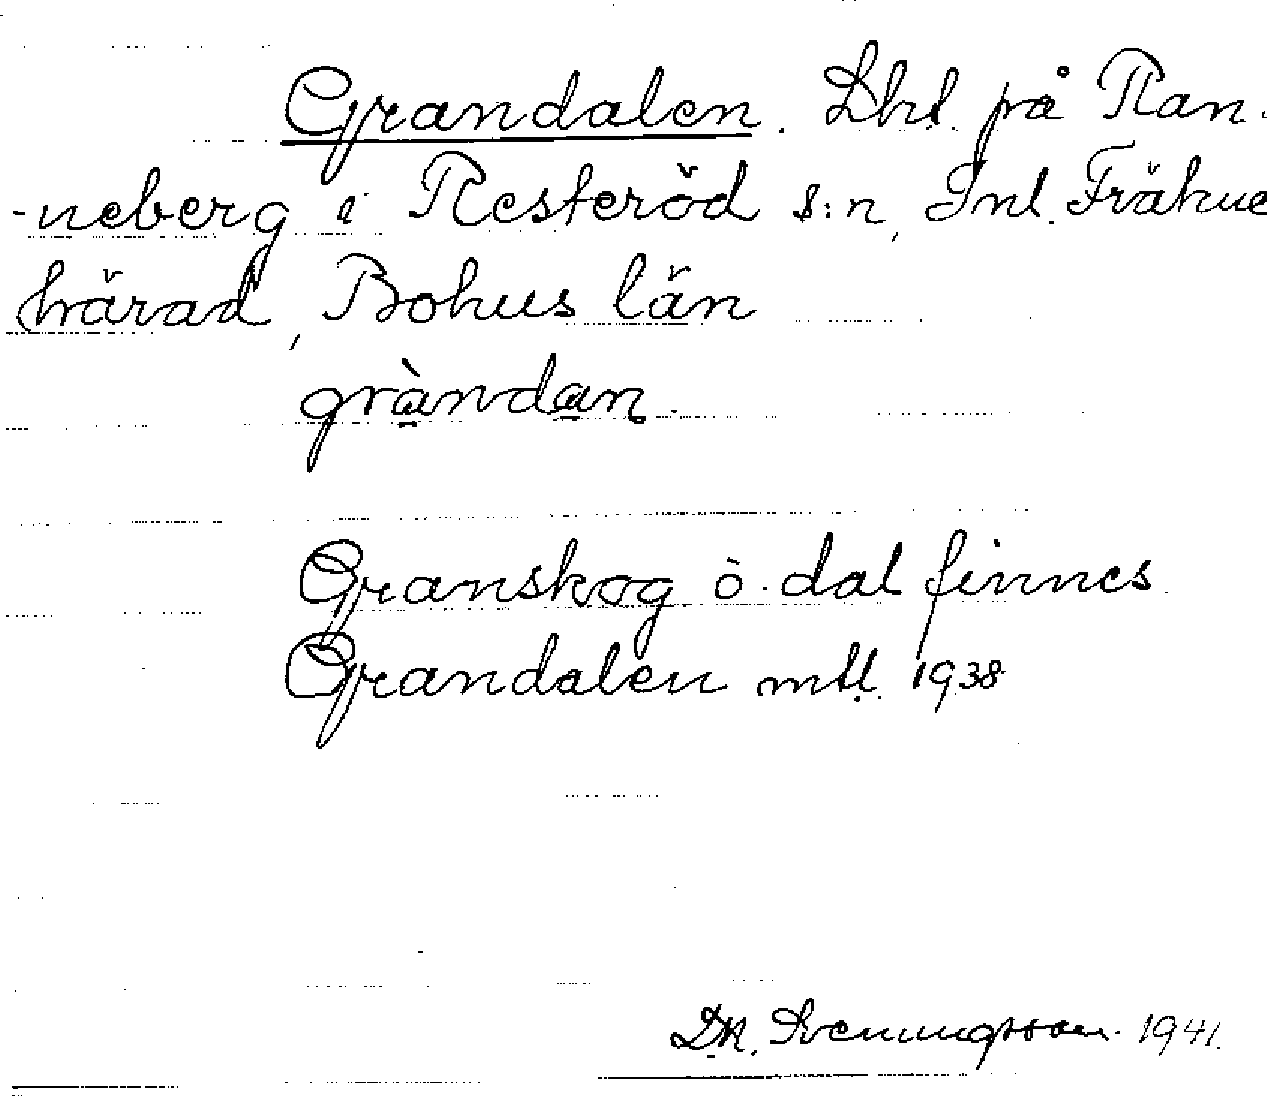 Grandalen. Lht. på Ran-
-neberg i Resteröd s:n, Inl. Fräkne
härad, Bohus län
gràndan.
Granskog o. dal finnes.
Grandalen mtl. 1938
D.K. Svenungsson. 1941.